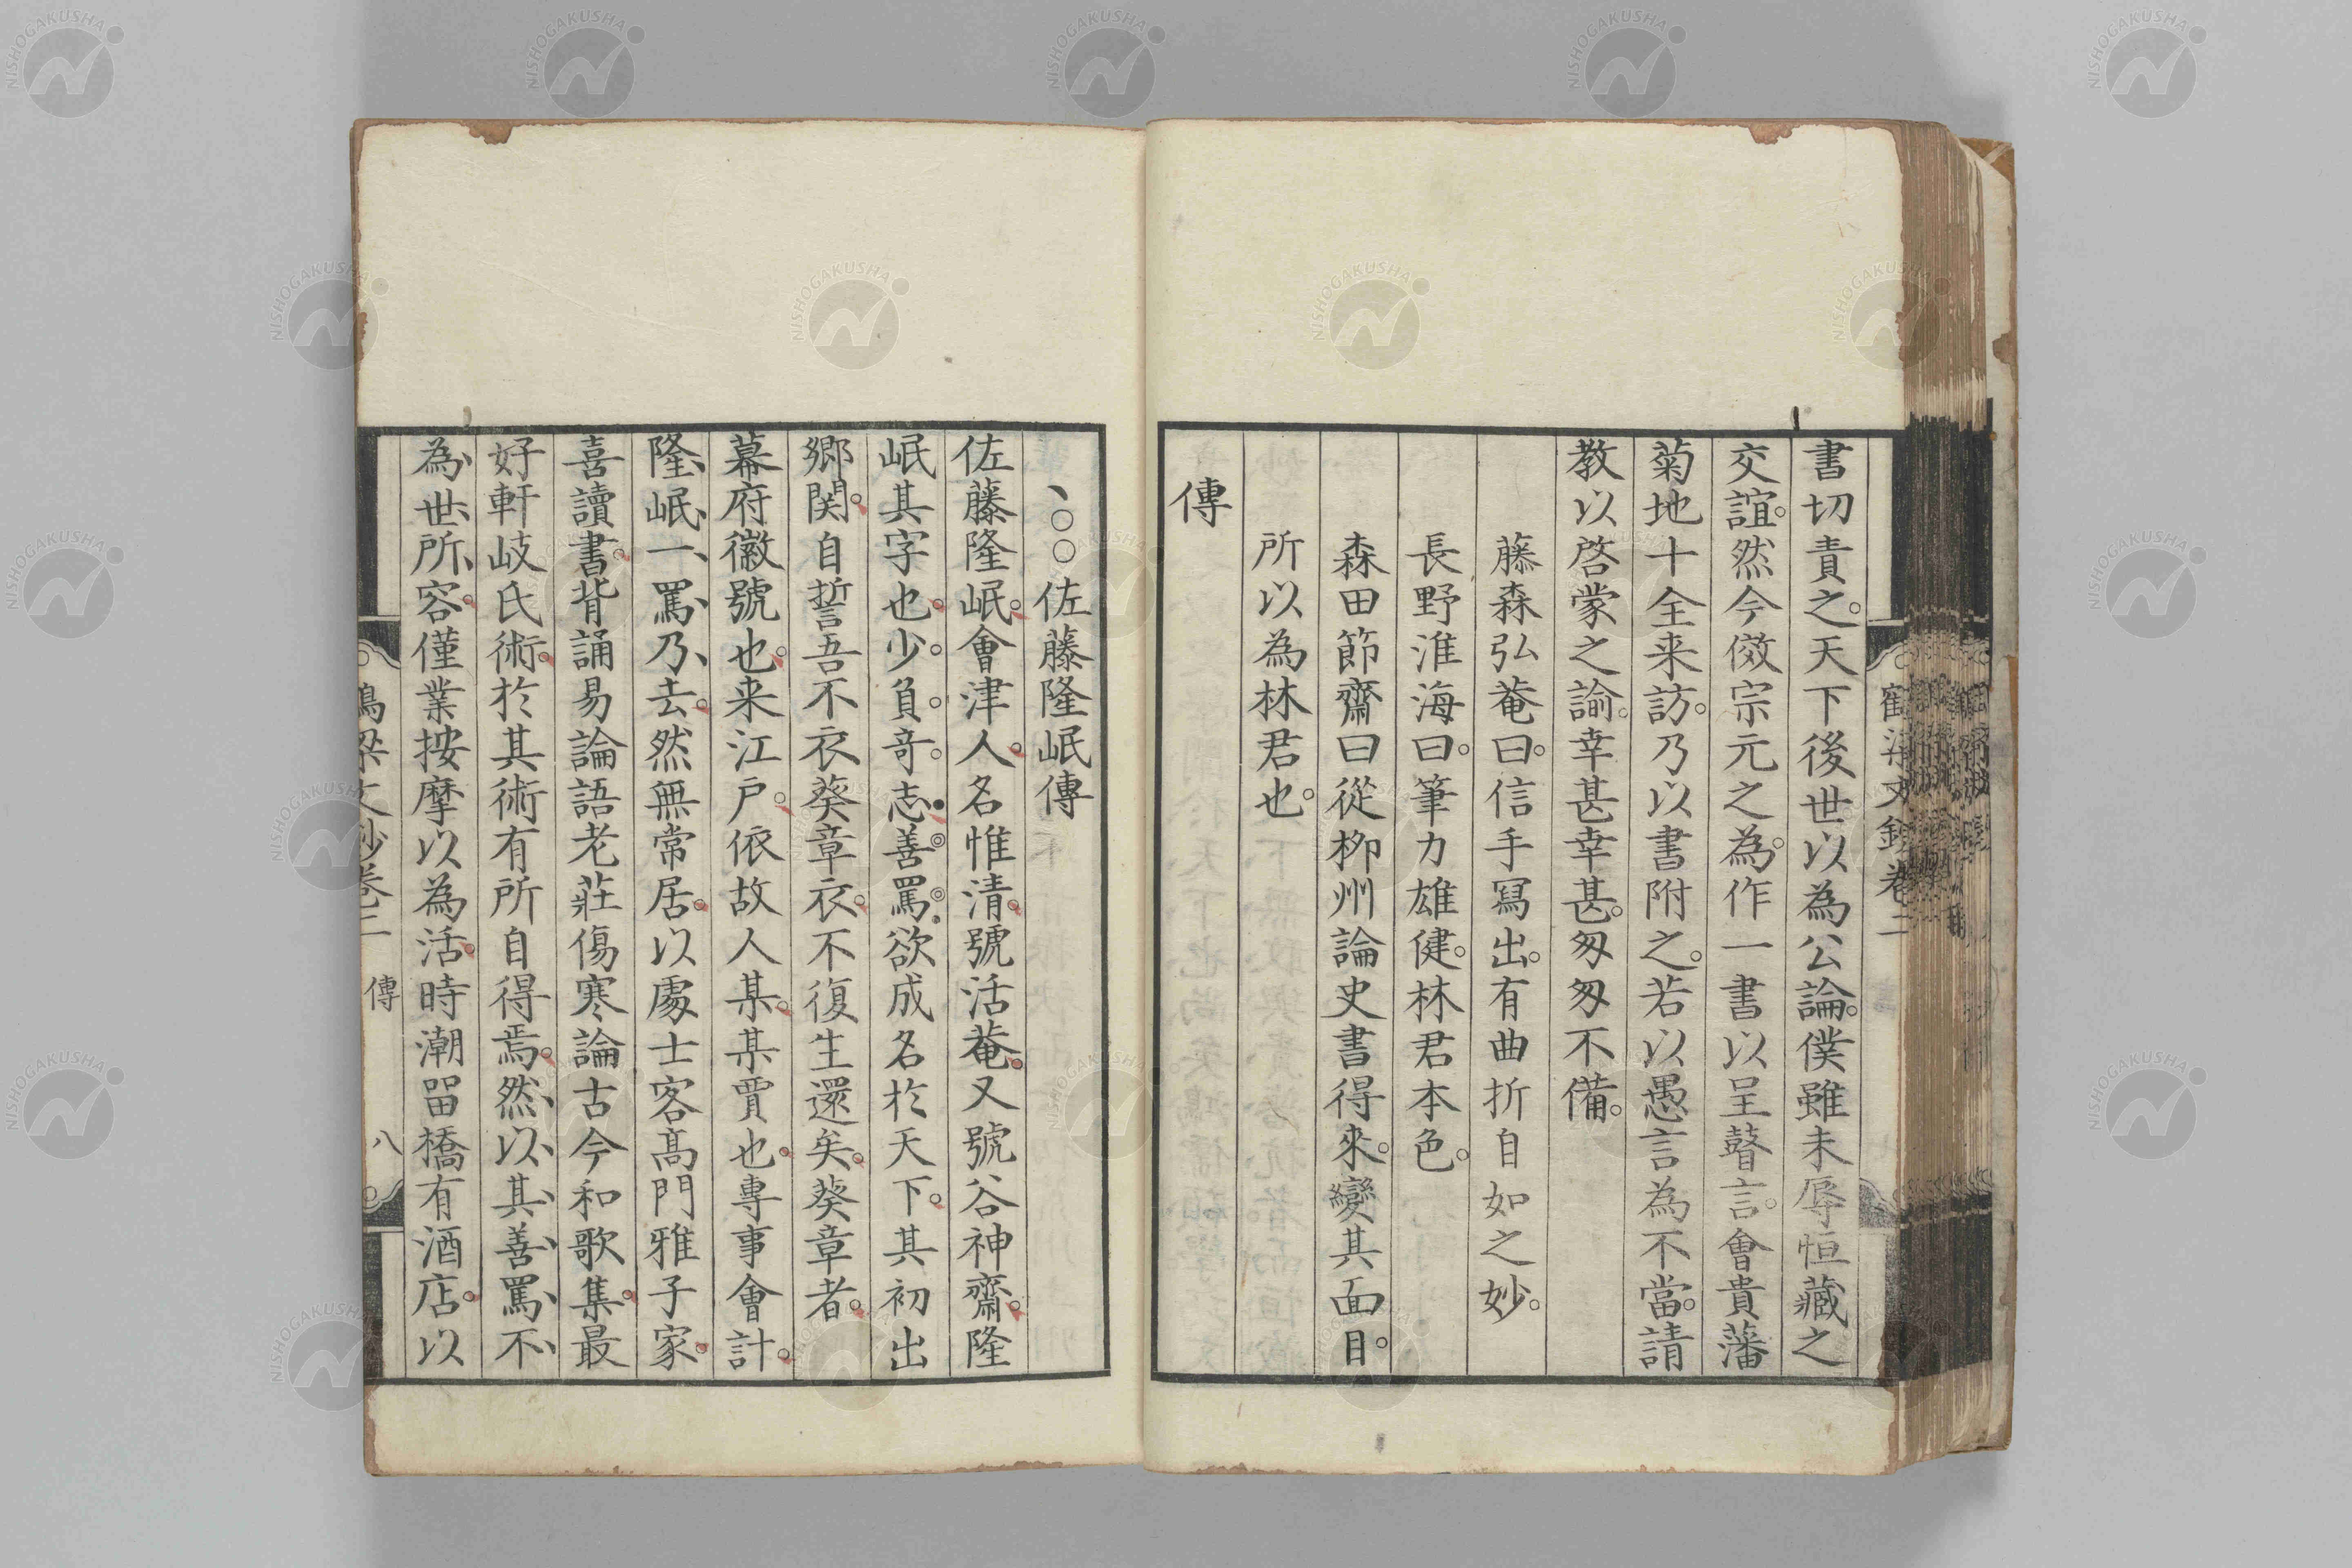 書切責之。天下後世以為公論。僕雖未辱恒藏之
交誼。然今傚宗元之為。作一書以呈瞽言。會貴藩
菊地十全来訪。乃以書附之。若以愚言為不當。請
教以啓蒙之諭。幸甚幸甚。匆匆不備。
藤森弘菴曰。信手寫出。有曲折自如之妙。
長野淮海曰。筆力雄健。林君本色。
森田節齋曰從柳州論史書得來。變其面目。
所以為林君也。
傳
、○○佐藤隆岷傳
佐藤隆岷。會津人。名惟清。號活菴。又號谷神齋。隆
岷其字也。少。負。竒。志善罵。欲成名於天下。其初出
鄉関。自誓吾不衣葵章衣。不復生還矣。葵章者。
幕府徽號也。来江戸。依故人某。某賈也。專事會計。
隆岷一罵乃去。然無常居。以處士客髙門雅子家。
喜讀書。背誦易論語老莊傷寒論古今和歌集。最
好軒岐氏術。於其術有所自得焉。然以其善罵不
為世所容。僅業按摩以為活。時潮留橋有酒店。以
鶴梁文鈔卷二
鶴梁文鈔卷二 傳 八
NISHOGAKUSHA